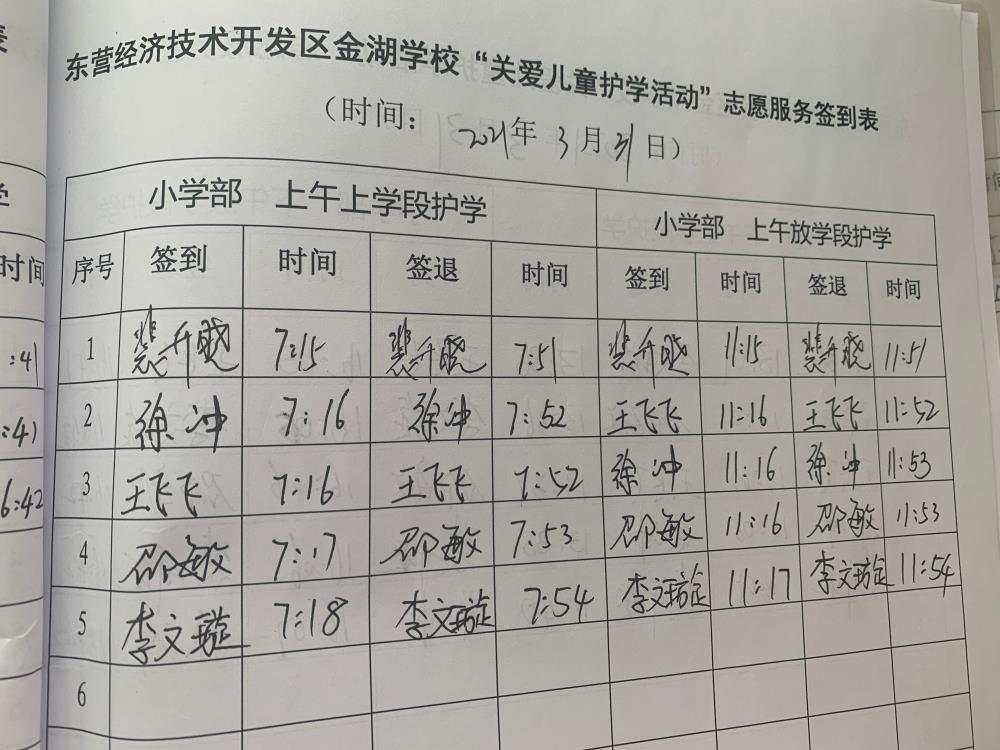 东营经济技术开发区金湖学校“关爱儿童护学活动”志愿服务签到表
(时间: 2021年 3 月 31 日)
小学部 上午上学段护学 小学部 上午放学段护学
序号 签到 时间 签退 时间 签到 时间 签退 时间
1 7:15 7:51 11:15 11:51
2 徐冲 7:16 徐冲 7:52 王飞飞 11:16 王飞飞 11:52
3 王飞飞 7:16 王飞飞 7:52 徐冲 11:16 徐冲 11:53
4 邵敏 7:17 邵敏 7:53 邵敏 11:16 邵敏 11:53
5 李文璇 7:18 李文璇 7:54 李文璇 11:17 李文璇 11:54
6
时间
:41
:41
6:42